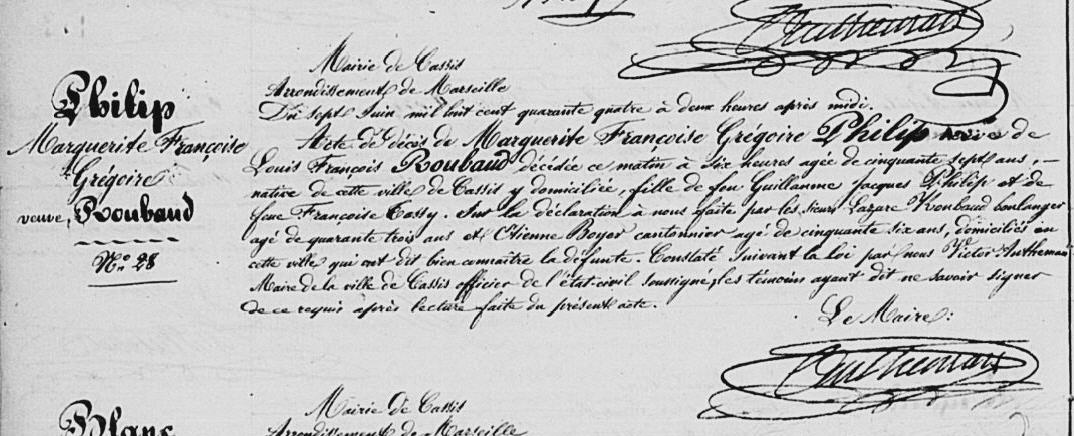 Philip
Marguerite Françoise
Grégoire
veuve, Roubaud
N.o 28
Mairie de Cassis
Arrondissement de Marseille
Du sept Juin mil huit cent quarante quatre à deux heures après midi.
Acte de décès de Marguerite Françoise Grégoire Philip veuve de
Louis François Roubaud décédée ce matin à six heures agée de cinquante sept ans, –
native de cette ville de Cassis y domiciliée, fille de feu Guillaume Jacques Philip et de
feue Françoise Tassy. Sur la déclaration à nous faite par les sieurs Lazare Roubaud boulanger
agé de quarante trois ans et Etienne Boyer cantonnier agé de cinquante six ans, domiciliés en
cette ville qui ont dit bien connaitre la défunte. Constaté suivant la loi par nous Victor Autheman
Maire de la ville de Cassis officier de l'état-civil soussigné, les témoins ayant dit ne savoir signer
de ce requis après lecture faite du présent acte.
Le Maire:
Autheman
Blanc
Mairie de Cassis
Arrondissement de Marseille